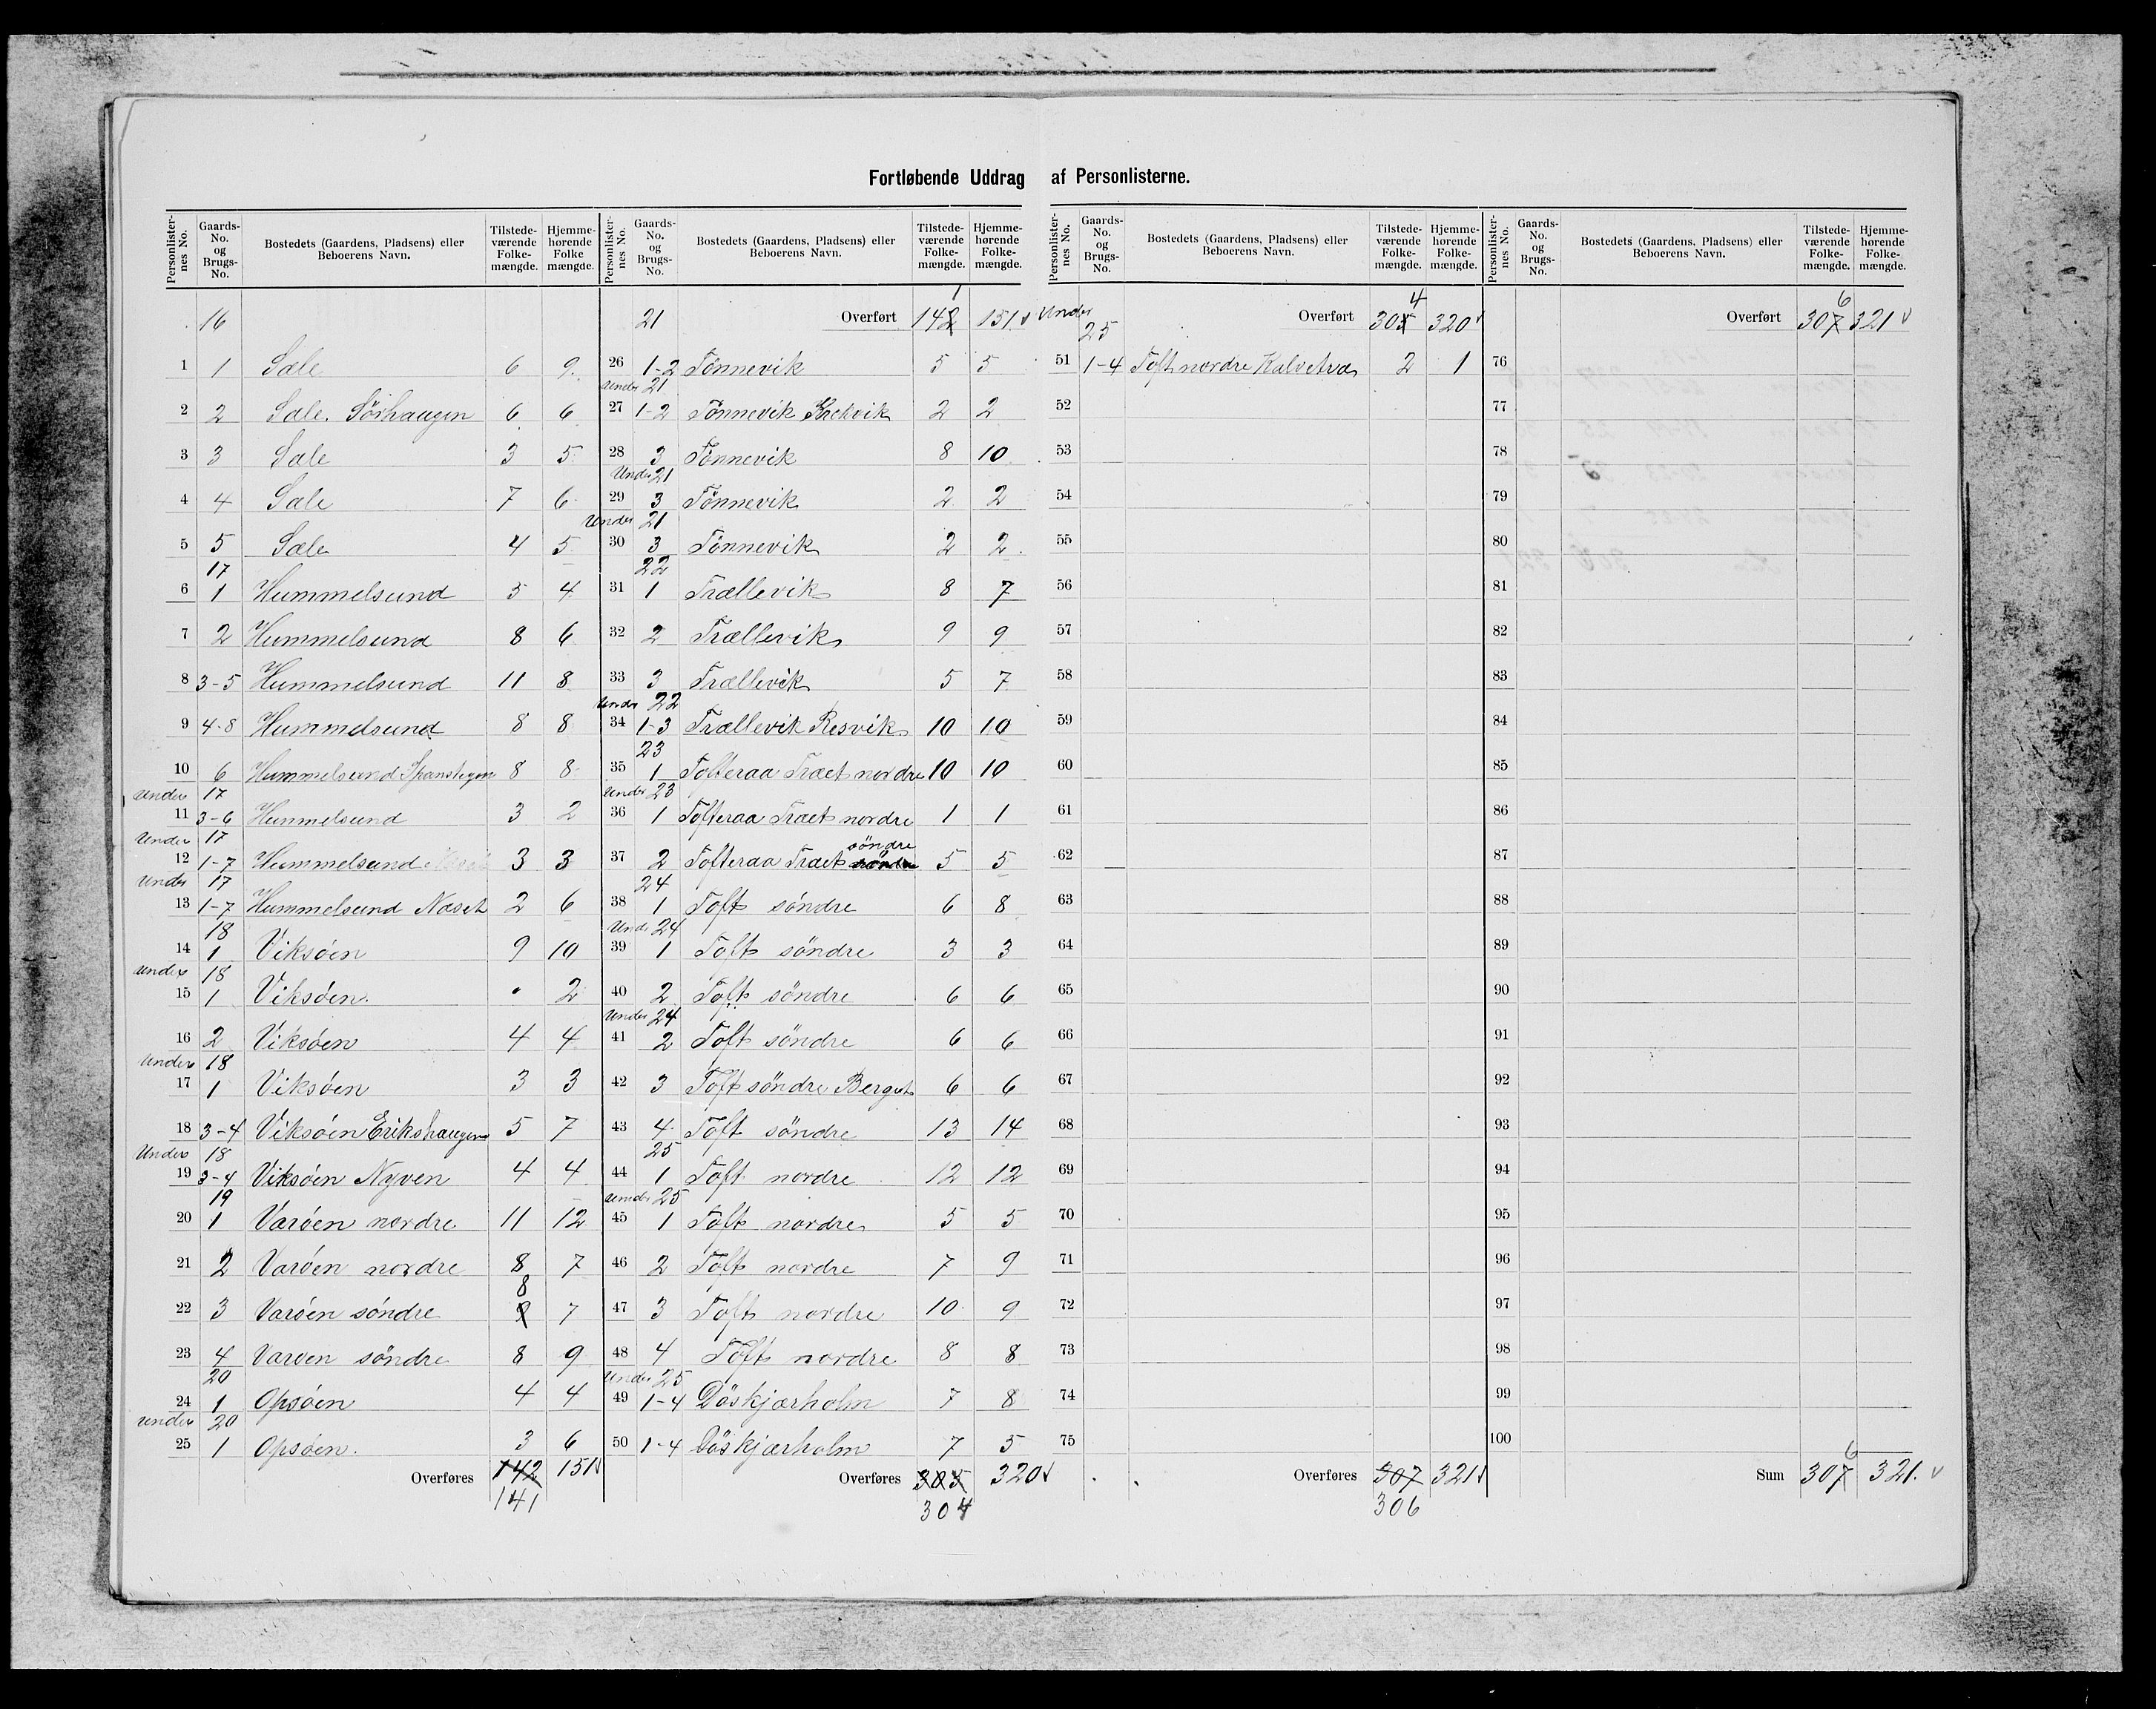 Fortløbende Uddrag af Personlisterne.
Personlisternes No. Gaards-No. og Brugs-No. Bostedets (Gaardens, Pladsens) eller Beboerens Navn. Tilstedeværende Folkemængde. Hjemmehørende Folkemængde.
16
1 1 Sæle 6 9
2 2 Sæle. Sørhaugen 6 6
3 3 Sæle 3 5
4 4 Sæle 7 6
5 5 Sæle 4 5
17
6 1 Hummelsund 5 4
7 2 Hummelsund 8 6
8 3-5 Hummelsund 11 8
9 4-8 Hummelsund 8 8
10 6 Hummelsund 8 8
Under 17
11 3-6 Hummelsund 3 2
Under 17
12 1-7 Hummelsund 3 3
Under 17
13 1-7 Hummelsund Næset 2 6
18
14 1 Viksöen 9 10
Under 18
15 1 Viksöen. • 2
16 2 Viksöen 4 4
Under 18
17 1 Viksöen 3 3
18 3-4 Viksöen Erikshaugen 5 7
Under 18
19 3-4 Viksöen Nyven 4 4
19
20 1 Varöen nordre 11 12
21 2 Varöen nordre 8 7
8
22 3 Varöen söndre 9 7
23 4 Varöen söndre 8 9
20
24 1 Opsöen 4 4
Under 20
25 1 Opsöen. 3 6
Overføres 142 151
141
Personlisternes No. Gaards-No. og Brugs-No. Bostedets (Gaardens, Pladsens) eller Beboerens Navn. Tilstedeværende Folkemængde. Hjemmehørende Folkemængde.
1
21 Overført 142 151
26 1-2 Tönnevik 5 5
Under 21
27 1-2 Tönnevik 2 2
28 3 Tönnevik 8 10
Under 21
29 3 Tönnevik 2 2
Under 21
30 3 Tönnevik 2 2
22
31 1 Trællevik 8 7
32 2 Trællevik 9 9
33 3 Trællevik 5 7
Under 22
34 1-3 Trællevik Resvik 10 10
23
35 1 Tofteraa Træet nordre 10 10
Under 23
36 1 Tofteraa Træet nordre 1 1
söndre
37 2 Tofteraa Træet nordre 5 5
24
38 1 Toft söndre 6 8
Under 24
39 1 Toft söndre 3 3
40 2 Toft söndre 6 6
Under 24
41 2 Toft söndre 6 6
42 3 Toft söndre Berget 6 6
43 4 Toft söndre 13 14
25
44 1 Toft nordre 12 12
Under 25
45 1 Toft nordre 5 5
46 2 Toft nordre 7 9
47 3 Toft nordre 10 9
48 4 Toft nordre 8 8
Under 25
49 1-4 Döskjærholm 7 8
50 1-4 Döskjærholm 7 5
Overføres 305 320
304
Personlisternes No. Gaards-No. og Brugs-No. Bostedets (Gaardens, Pladsens) eller Beboerens Navn. Tilstedeværende Folkemængde. Hjemmehørende Folkemængde.
4
Under 25 Overført 305 320
51 1-4 Toft nordre 2 1
52
53
54
55
56
57
58
59
60
61
62
63
64
65
66
67
68
69
70
71
72
73
74
75
Overføres 307 321
306
Personlisternes No. Gaards-No. og Brugs-No. Bostedets (Gaardens, Pladsens) eller Beboerens Navn. Tilstedeværende Folkemængde. Hjemmehørende Folkemængde.
6
Overført 307 321
76
77
78
79
80
81
82
83
84
85
86
87
88
89
90
91
92
93
94
95
96
97
98
99
100
6
Sum 307 321.